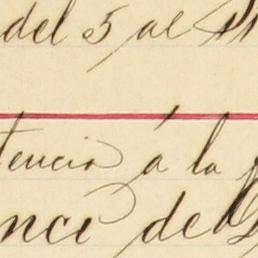 del 5 al
tencia á la
nce del